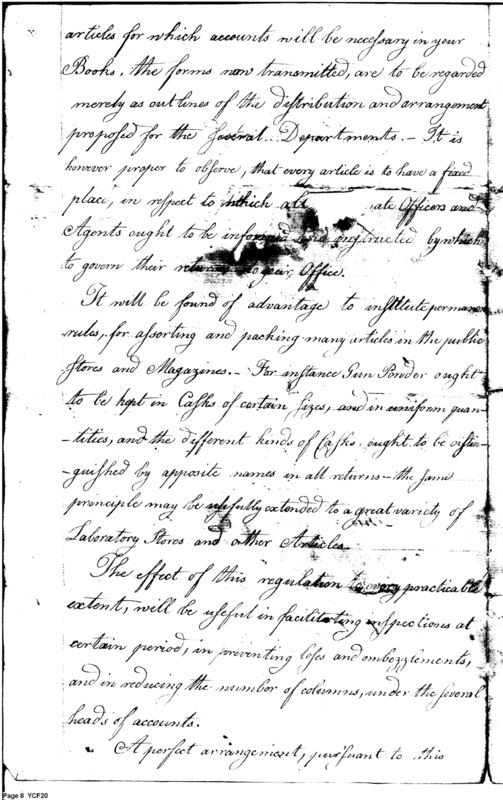 articles for which accounts will be necessary in your
Books, the forms now transmitted, are to be regarded
merely as outlines of the distribution and arrangement
proposed for the several Departments. – It is
however proper to observe, that every article is to have a fixed
place, in respect to which all Officers and
Agents ought to be informed and instructed by which
to govern their returns to your Office.
It will be found of advantage to institute permanent
rules, for assorting and packing many articles in the public
Stores and Magazines. – For instance Gun Powder ought
to be kept in Casks of certain sizes, and in uniform quan-
-tities, and the different kinds of Casks ought to be distin-
-guished by apposite names in all returns – the same
principle may be usefully extended to a great variety of
Laboratory Stores and other Articles
The effect of this regulation to every practicable
extent, will be useful in facilitating inspections at
certain period, in preventing loses and embezzlements,
and in reducing the number of columns, under the several
heads of accounts.
A perfect arrangement, pursuant to this
Page 8 YCF20